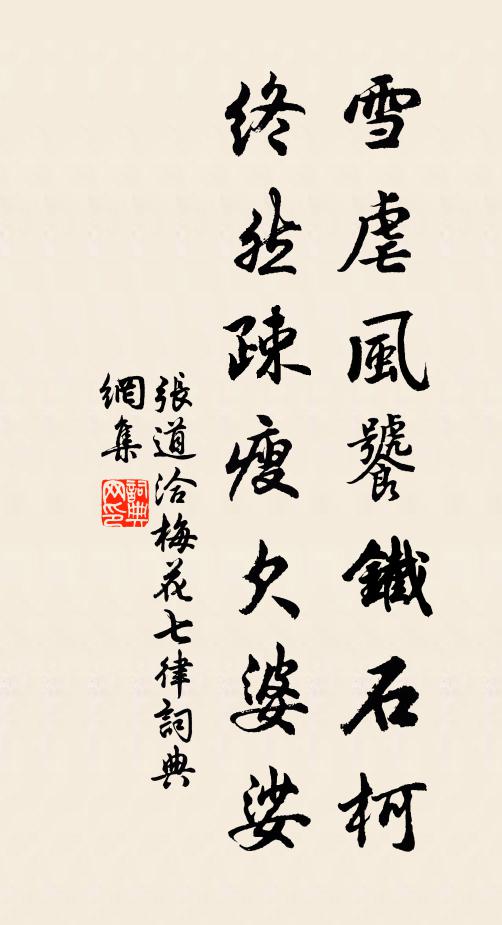 雪虐風饕鐵石柯
終然疎瘦欠婆娑
張道洽梅花七律詞典
網集
詞典網印